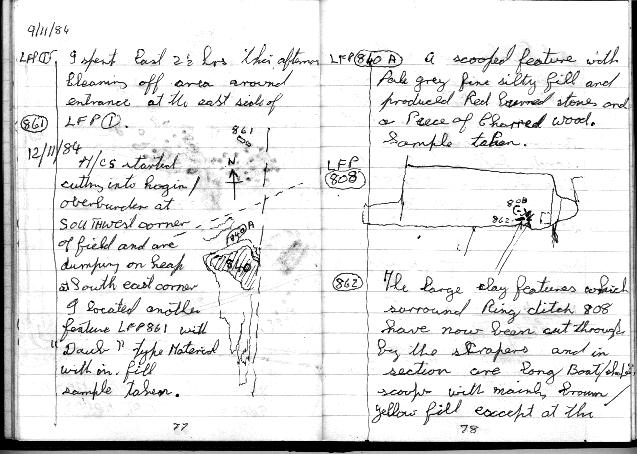 9/11/84
LFP① I spent last 2½ hrs this afternoon
cleaning off area around
entrance at the east side of
861 LFP①.
861
12/11/84
M/CS started
N
cutting into hogin/
overburden at
SOUTHwest corner
of field and are
840A
dumping on heap
840
at South east corner
I located another
feature LFP861 with
"Daub" type Material
with in. fill
sample taken.
77
LFP 840A a scooped feature with
Pale grey fine silty fill and
produced Red burned stones and
a Piece of Charred wood.
Sample taken.
LFP
808
808
862
862 The large clay features which
surround Ring ditch 808
have now been cut through
by the scrapers and in
section are long Boat/shaped
scoops with mainly brown/
yellow fill except at the
78